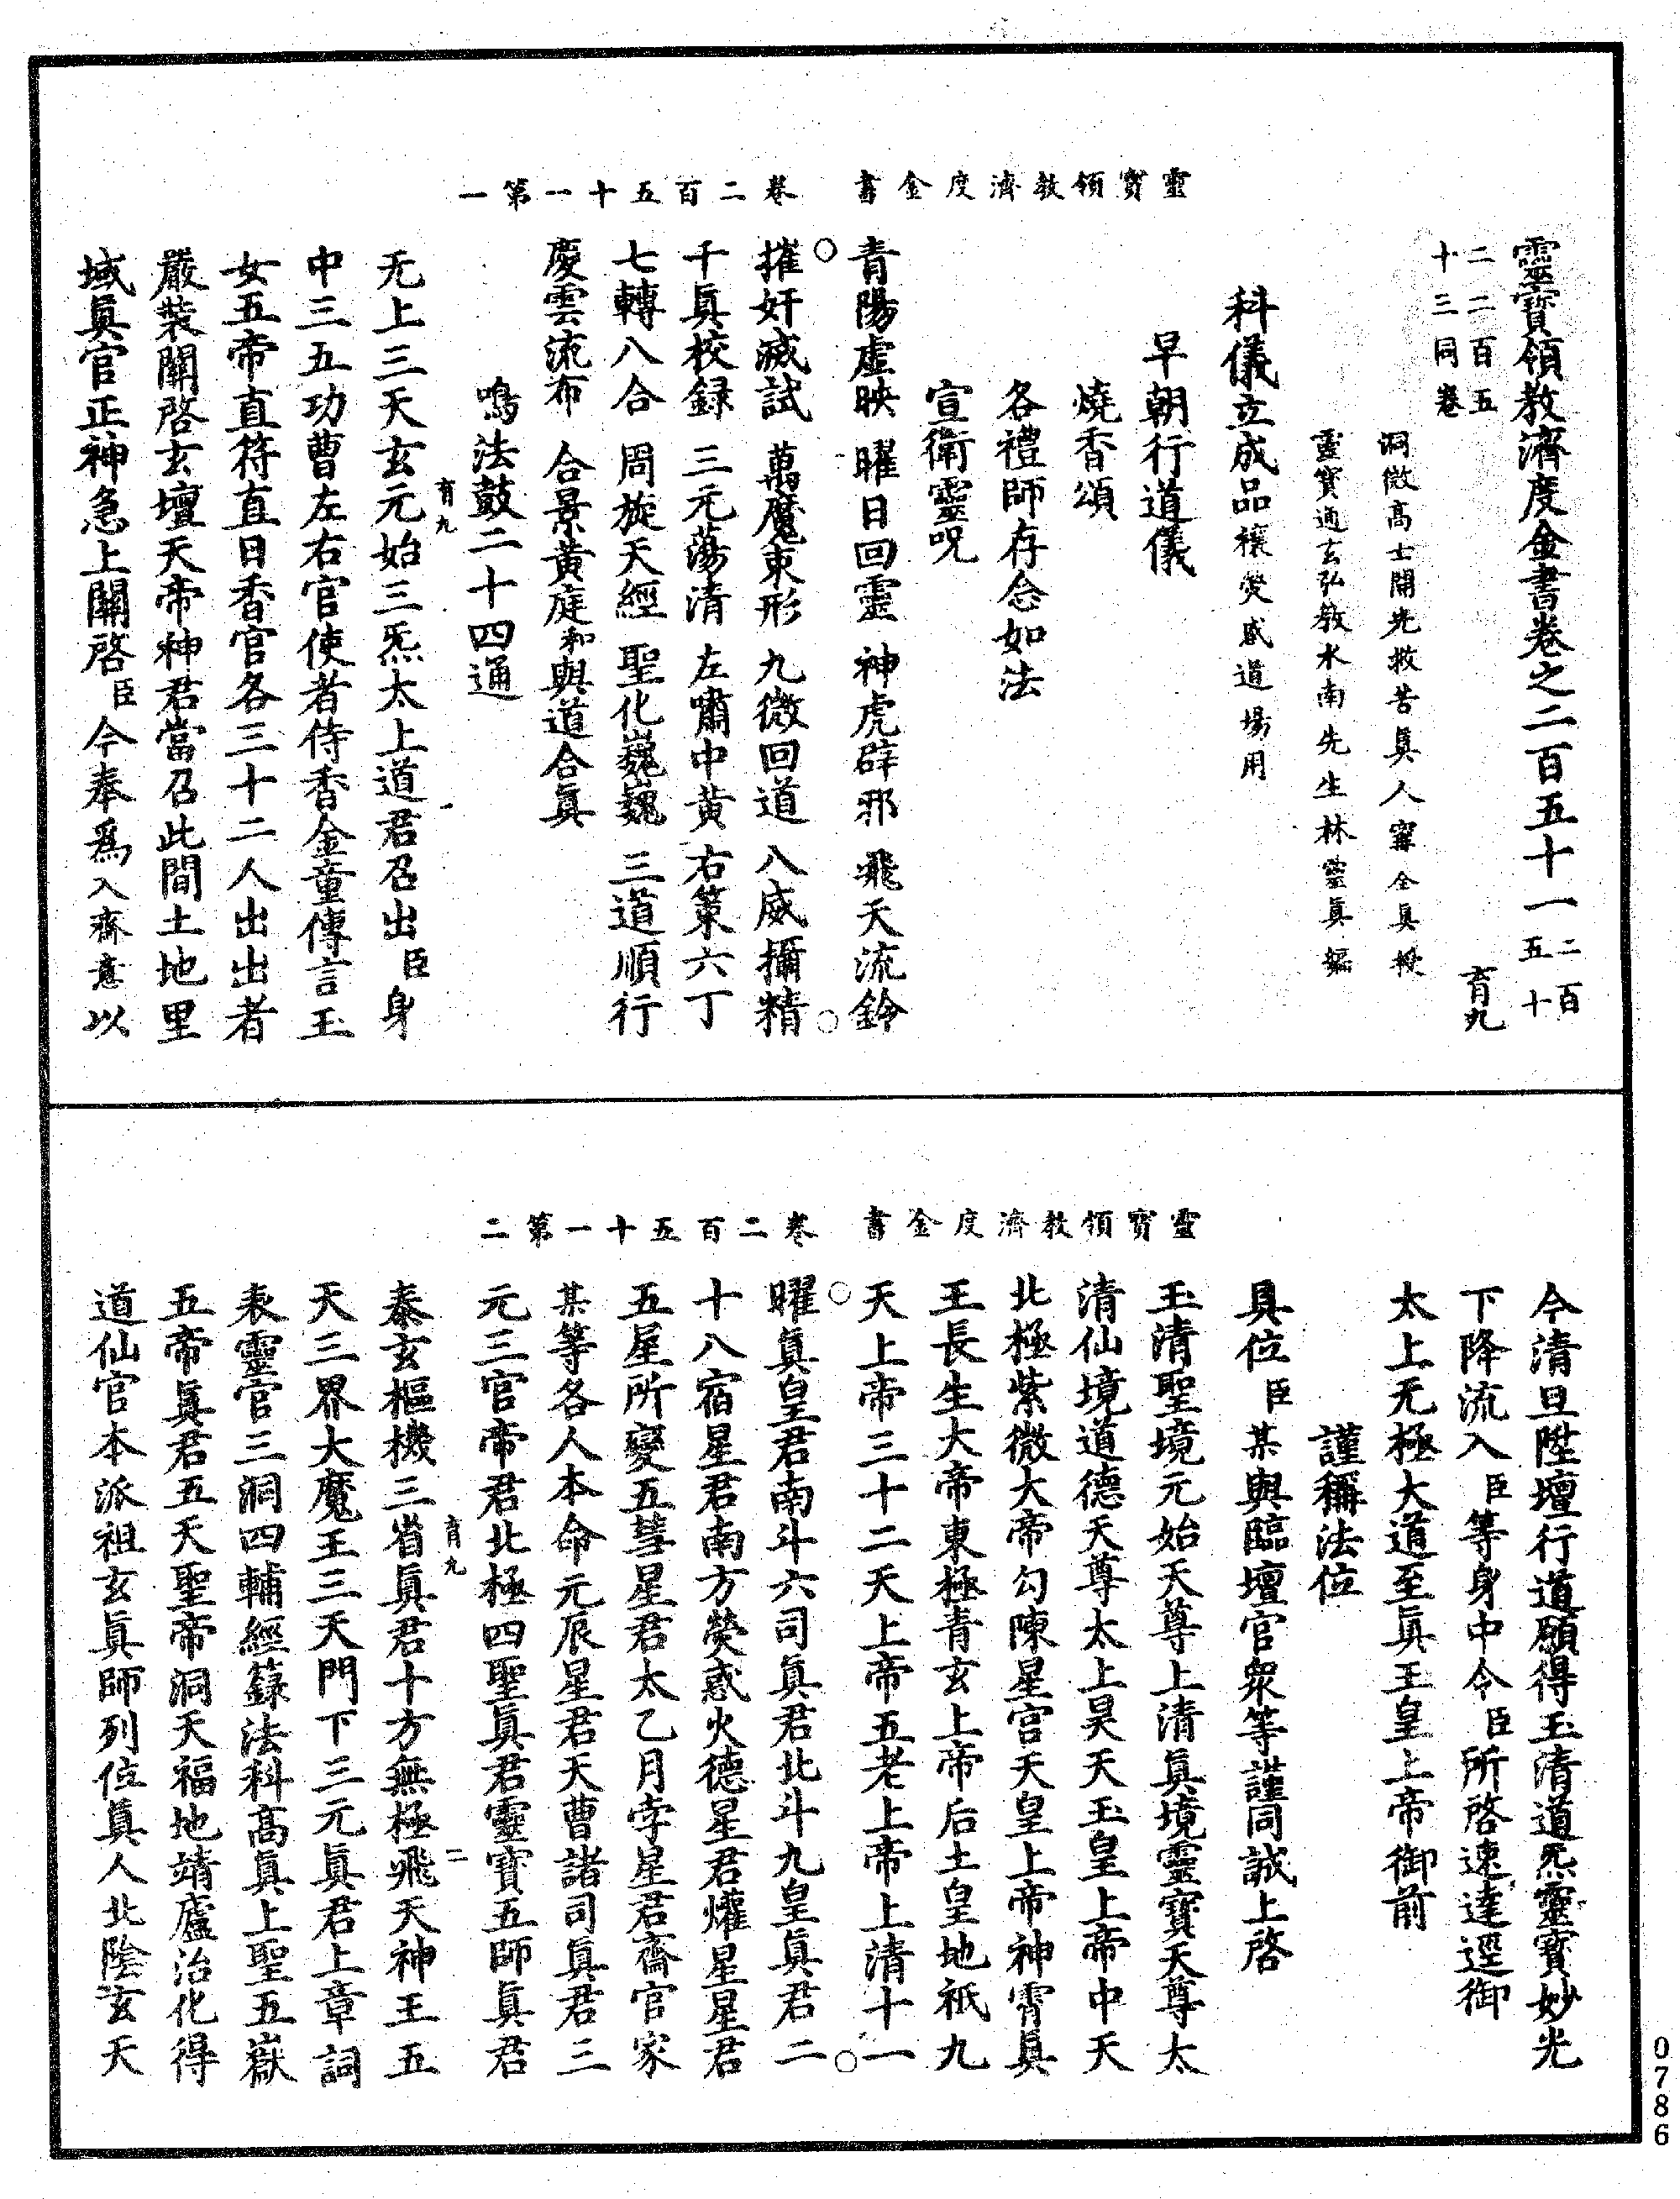 靈寶領教濟度金書　卷二百五十一第一
靈寶領教濟度金書卷之二百五十一二百五十
二二百五十三同卷　育九
洞微高士開光救苦眞人甯全眞授
靈寶通玄弘教水南先生林靈眞編
科儀立成品禳熒惑道場用
早朝行道儀
燒香頌
各禮師存念如法
宣衛靈呪
青陽虛映　曜日回靈　神虎辟邪　飛天流鈴
摧奸滅試　萬魔束形　九微回道　八威攝精
千眞校録　三元蕩清　左嘯中黃　右策六丁
七轉八合　周旋天經　聖化巍巍　三道順行
慶雲流布　合景黃庭和與道合眞
鳴法鼓二十四通
育九　一
无上三天玄元始三炁太上道君召出臣身
中三五功曹左右官使者侍香金童傳言玉
女五帝直符直日香官各三十二人出出者
嚴裝關啓玄壇天帝神君當召此間土地里
域眞官正神急上關啓臣今奉爲入齋意以
靈寶領教濟度金書　卷二百五十一第二
今清旦陞壇行道願得玉清道炁靈寶妙光
下降流入臣等身中令臣所啓速達逕御
太上无極大道至眞玉皇上帝御前
謹稱法位
具位臣某與臨壇官衆等謹同誠上啓
玉清聖境元始天尊上清眞境靈寶天尊太
清仙境道德天尊太上昊天玉皇上帝中天
北極紫微大帝勾陳星宮天皇上帝神霄眞
王長生大帝東極青玄上帝后土皇地祇九
天上帝三十二天上帝五老上帝上清十一
曜眞皇君南斗六司眞君北斗九皇眞君二
十八宿星君南方熒惑火德星君爟星星君
五星所變五彗星君太乙月孛星君齋官家
某等各人本命元辰星君天曹諸司眞君三
元三官帝君北極四聖眞君靈寶五師眞君
育九　二
泰玄樞機三省眞君十方無極飛天神王五
天三界大魔王三天門下三元眞君上章詞
表靈官三洞四輔經籙法科高眞上聖五嶽
五帝眞君五天聖帝洞天福地靖廬治化得
道仙官本派祖玄眞師列位眞人北陰玄天
0786